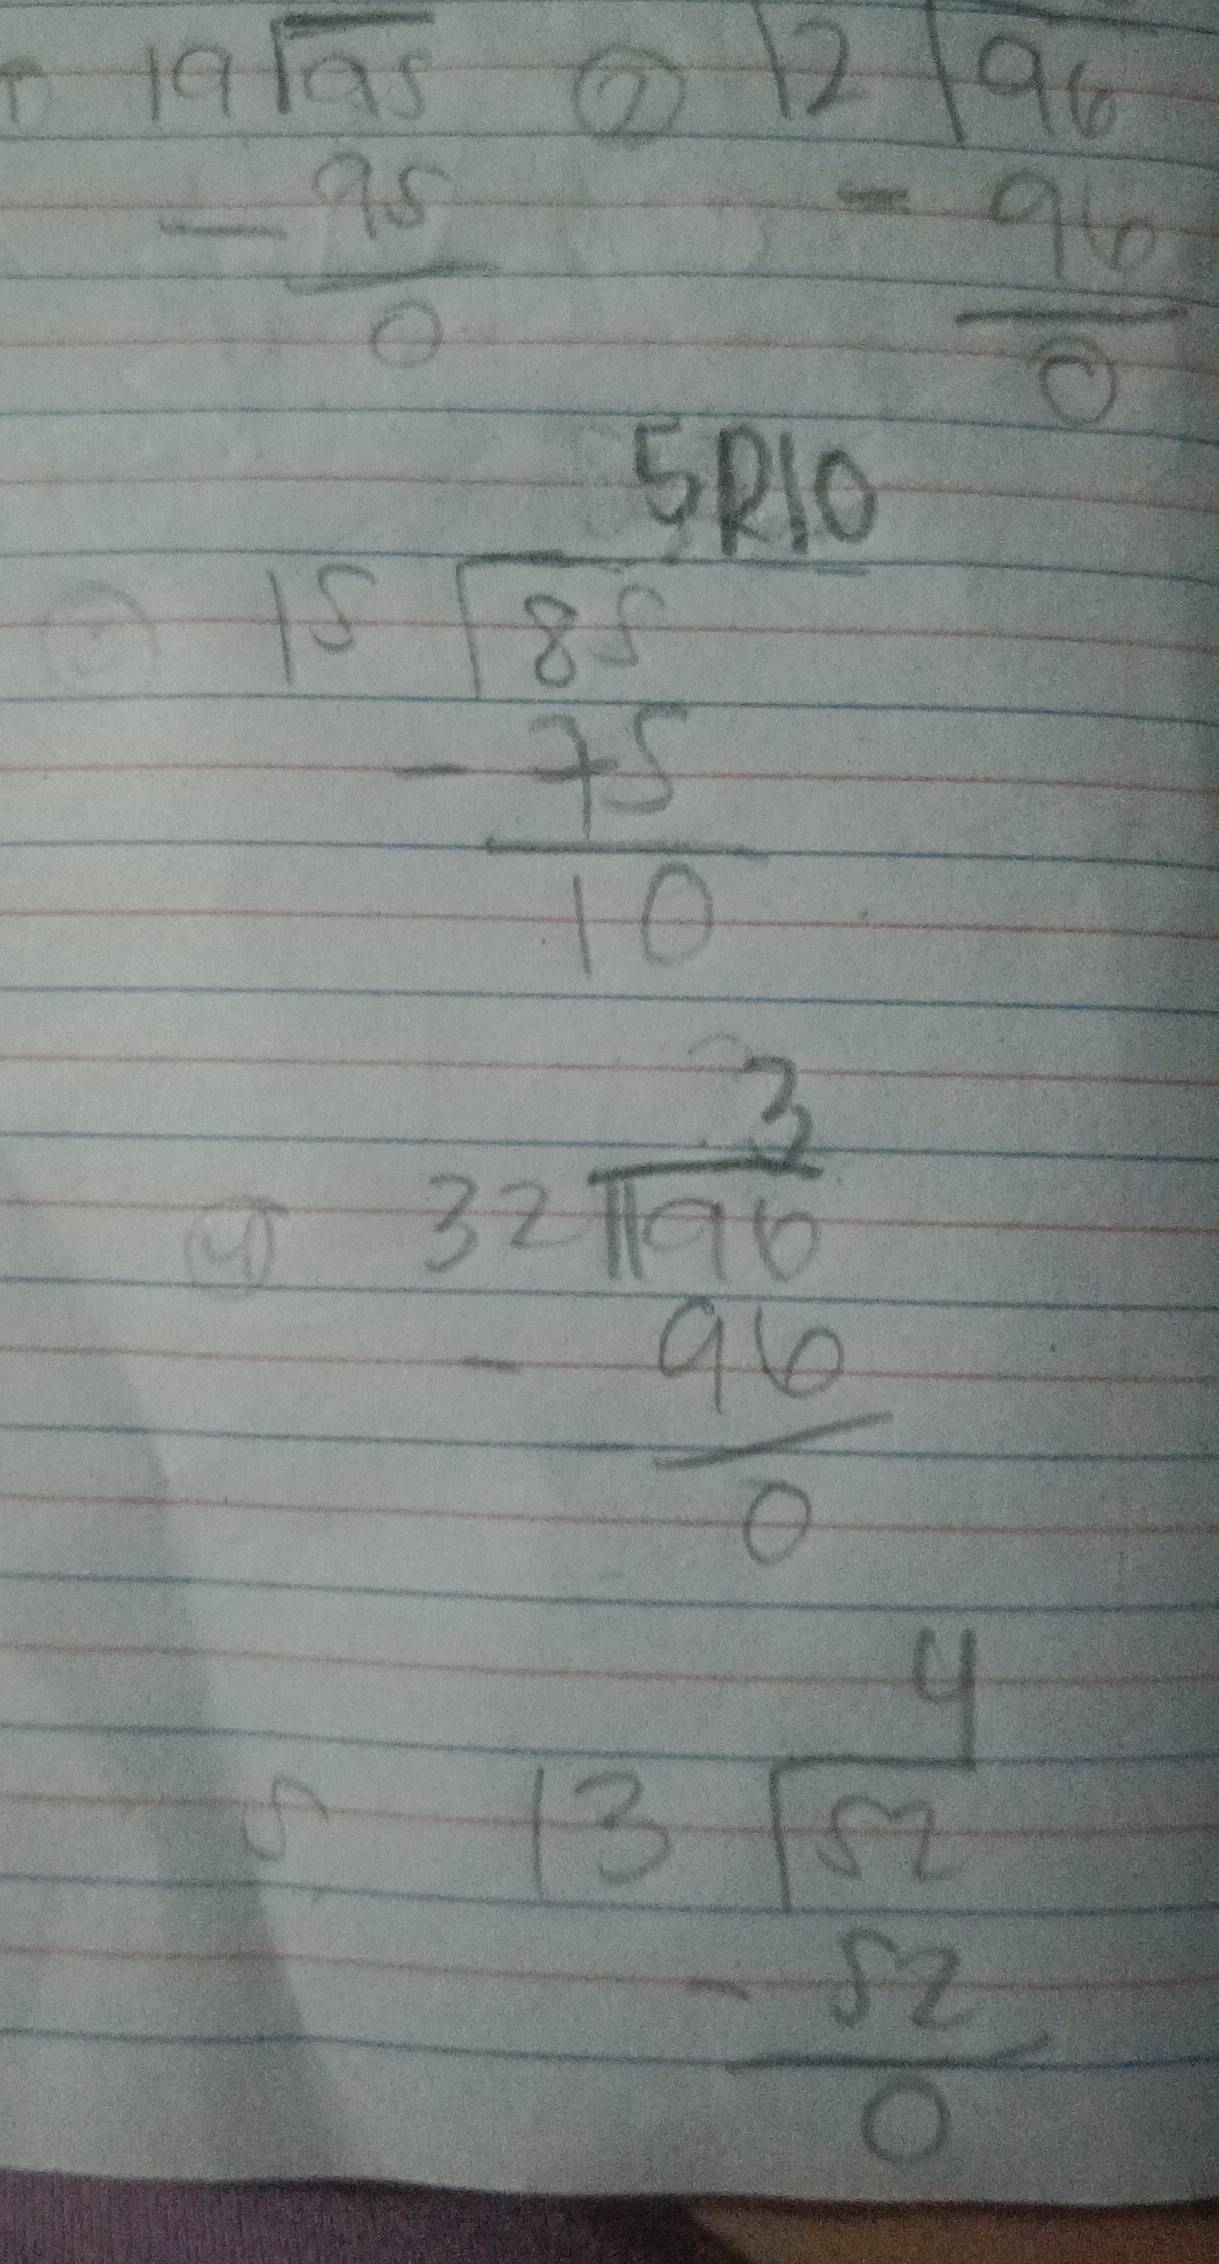 ① 19√95 ② 12√96
- 95 - 96
0 0
5R10
③ 15√85
- 75
10
3
④ 32√96
- 96
0
4
5 13√52
- 52
0